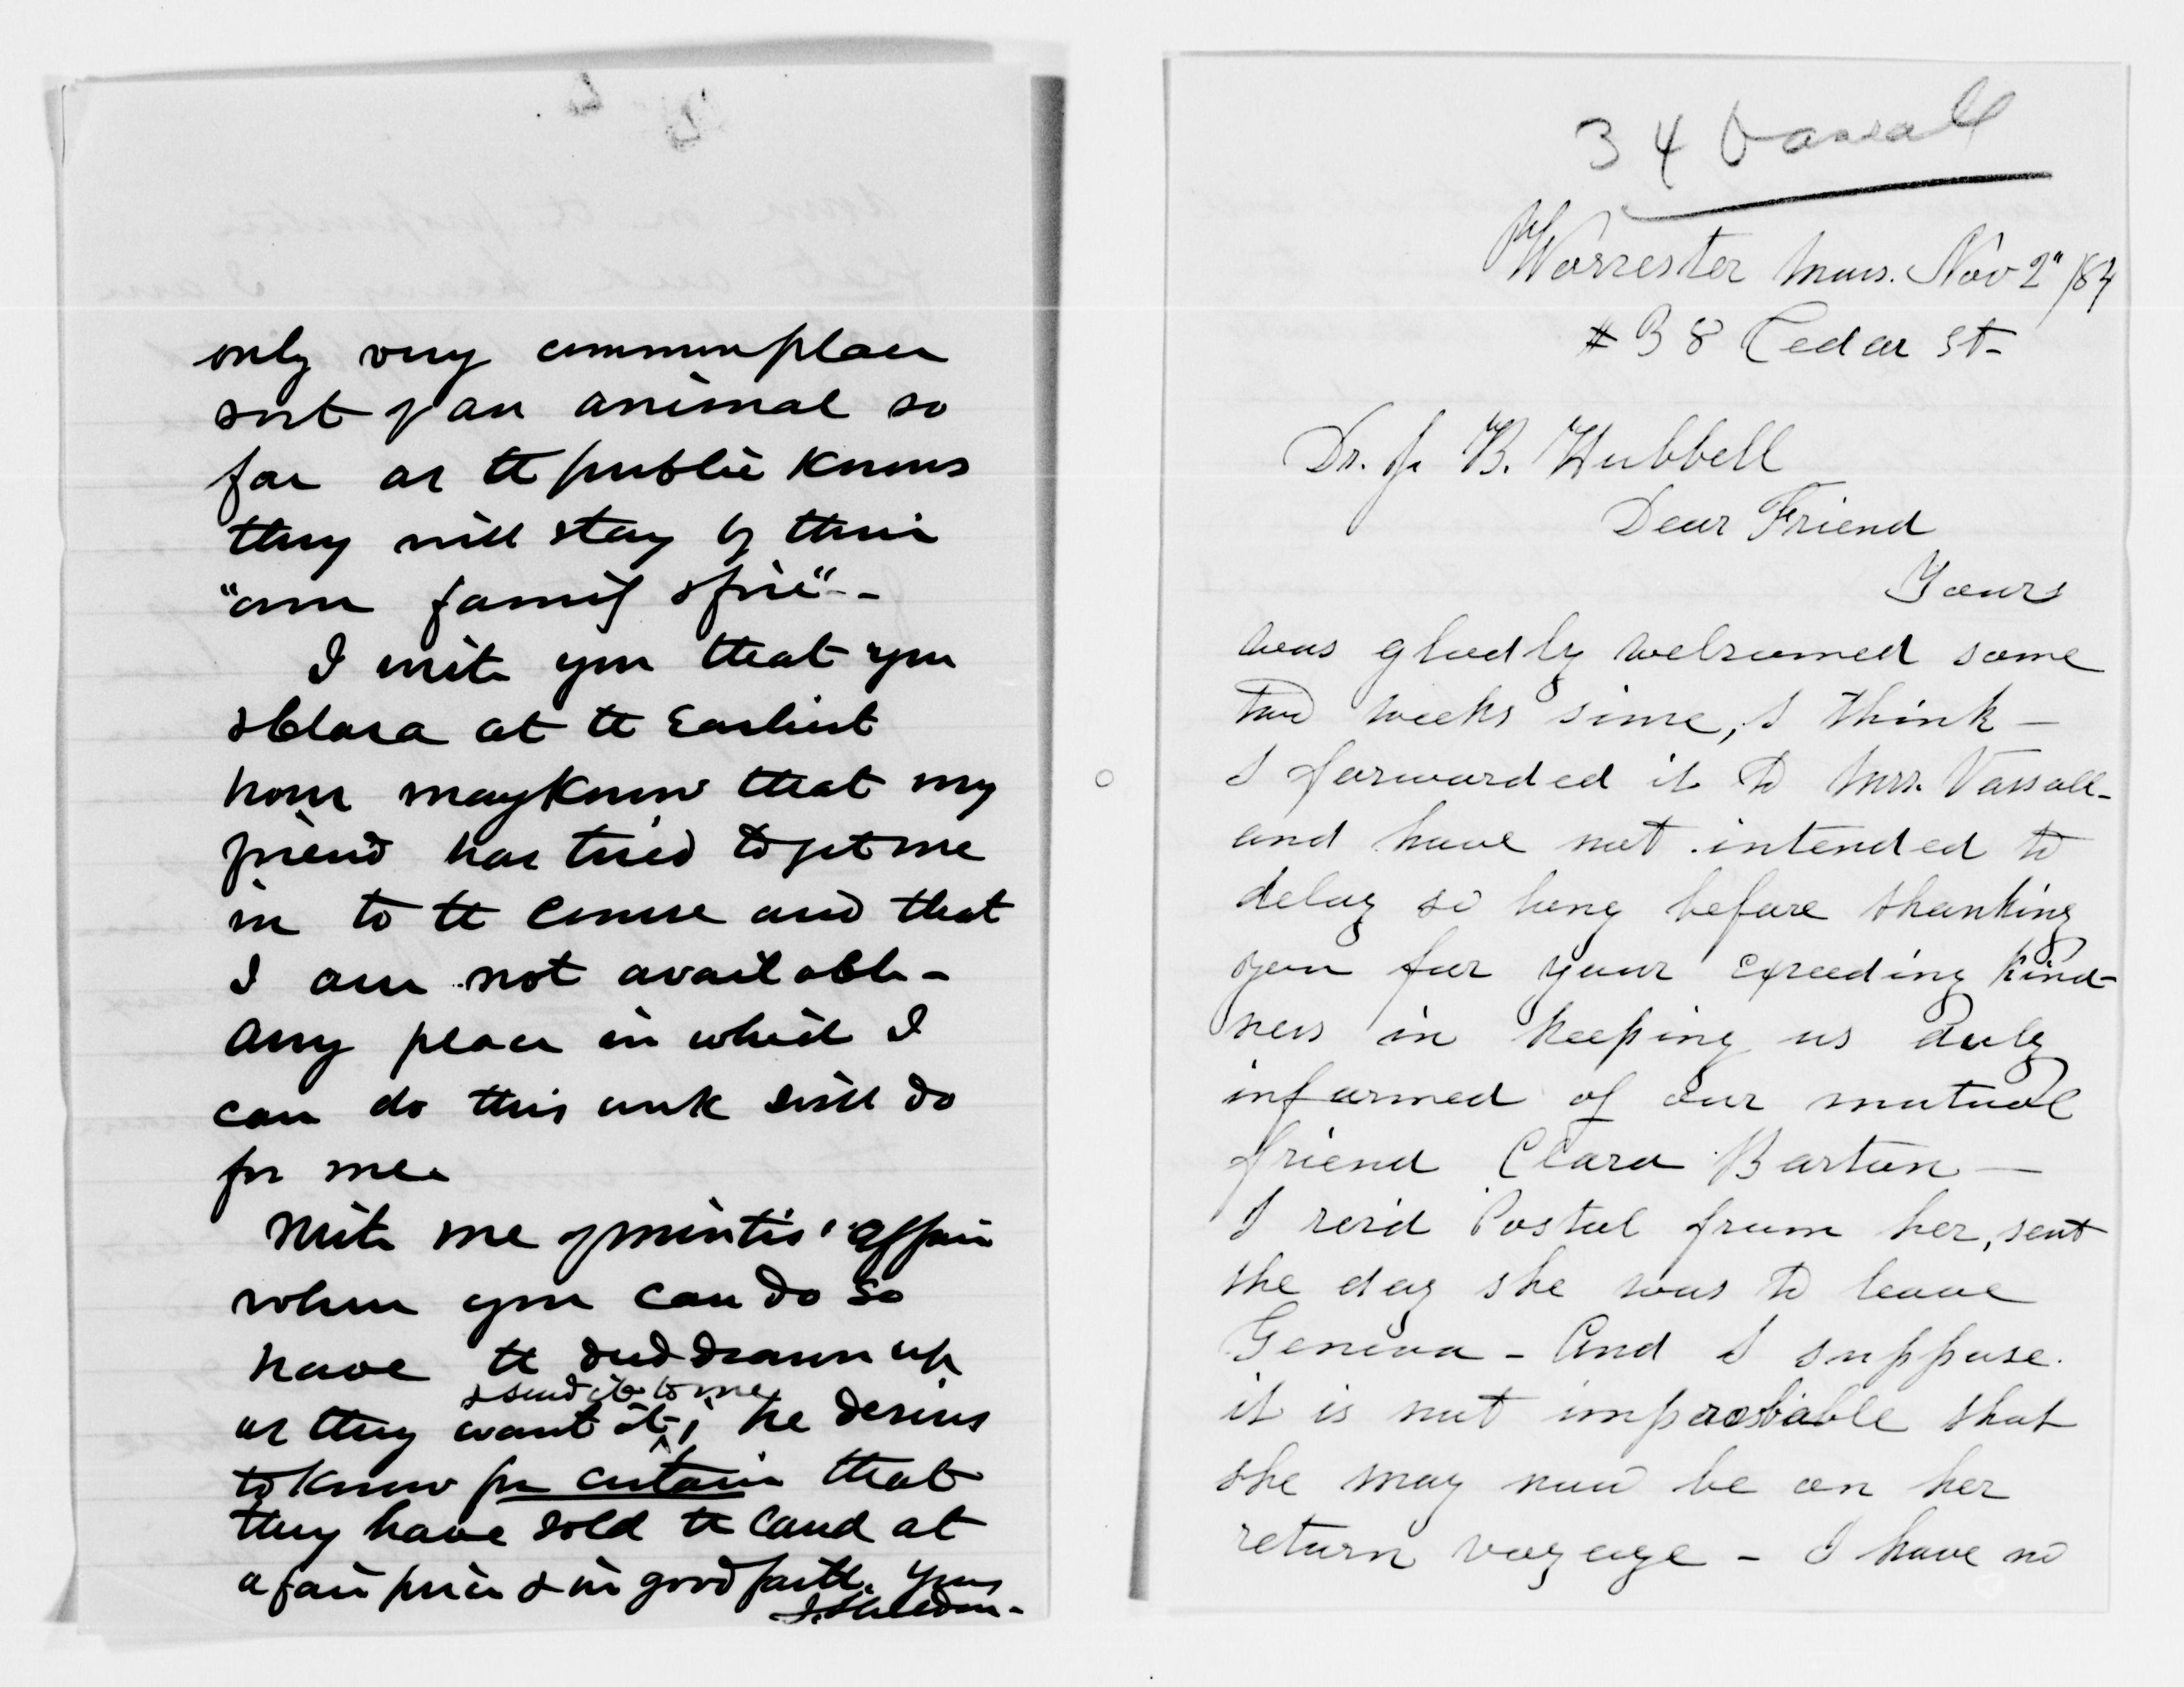 only very commonplace
sort of an animal so
far as the public knows
they will stay by their
"own family & fire" -
I write you that you
& Clara at the Earliest
hour may know that my
friend has tried to get me
in to the course and that
I am not available -
any place in which I
can do this work will do
for me.
Write me of affair
when you can do so
have the deed drawn up
& send it to me
as they want it, he desires
to know for certain that
they have sold the land at
a fair price & in good faith. Yours
J. Sheldon -
34 Vassall
Worcester Mass. Nov 2" /84
# 38 Cedar St-
Dr. J. B. Hubbell
Dear Friend
Yours
was gladly welcomed some
two weeks since, I think -
I forwarded it to Mrs. Vassall -
and have not intended to
delay so long before thanking
you for your exceeding kind-
ness in keeping us duly
informed of our mutual
friend Clara Barton -
I rec'd Postal from her, sent
the day she was to leave
Geneva - And I suppose
it is not improbable that
she may now be on her
return voyage - I have no